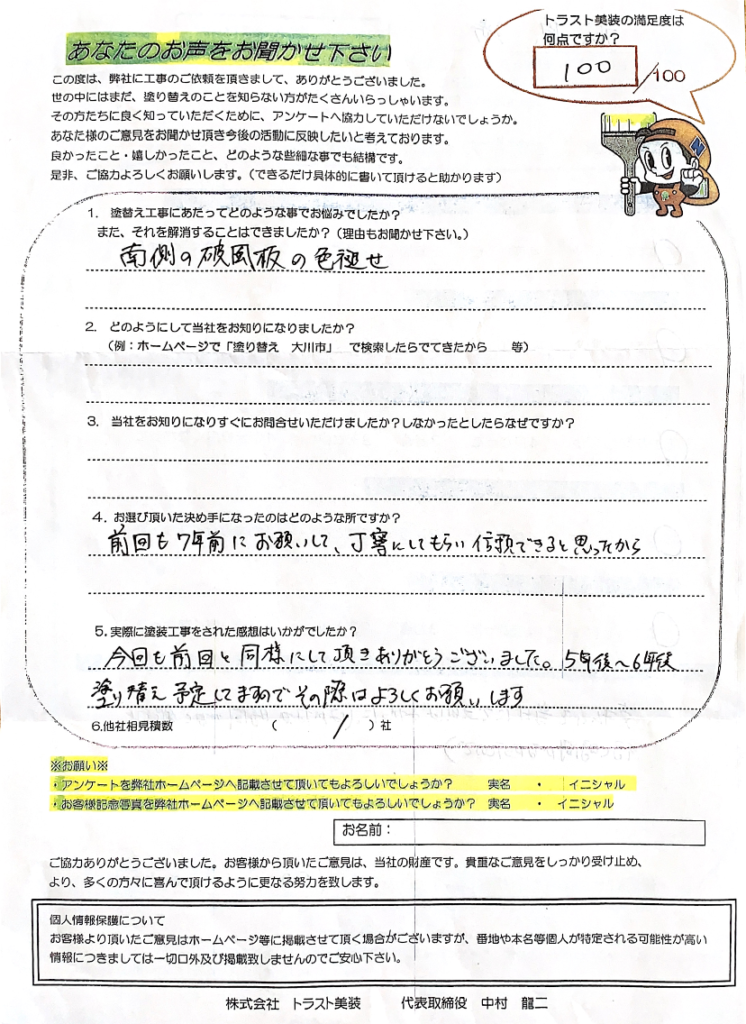 トラスト美装の満足度は
何点ですか?
100/100
あなたのお声をお聞かせ下さい
この度は、弊社に工事のご依頼を頂きまして、ありがとうございました。
世の中にはまだ、塗り替えのことを知らない方がたくさんいらっしゃいます。
その方たちに良く知っていただくために、アンケートへ協力していただけないでしょうか。
あなた様のご意見をお聞かせ頂き今後の活動に反映したいと考えております。
良かったこと・嬉しかったこと、どのような些細な事でも結構です。
是非、ご協力よろしくお願いします。(できるだけ具体的に書いて頂けると助かります)
1. 塗替え工事にあたってどのような事でお悩みでしたか?
また、それを解消することはできましたか?(理由もお聞かせ下さい。)
南側の破風板の色褪せ
2. どのようにして当社をお知りになりましたか?
(例:ホームページで「塗り替え 大川市」 で検索したらでてきたから 等)
3. 当社をお知りになりすぐにお問合せいただけましたか?しなかったとしたらなぜですか?
4. お選び頂いた決め手になったのはどのような所ですか?
前回も7年前にお願いして、丁寧にしてもらい信頼できると思ったから
5.実際に塗装工事をされた感想はいかがでしたか?
今回も前回と同様にして頂きありがとうございました。5年後〜6年後
塗り替え予定してますのでその際はよろしくお願いします
6.他社相見積数 ( / )社
※お願い※
・アンケートを弊社ホームページへ記載させて頂いてもよろしいでしょうか? 実名 ・ イニシャル
・お客様記念写真を弊社ホームページへ記載させて頂いてもよろしいでしょうか? 実名 ・ イニシャル
お名前:
ご協力ありがとうございました。お客様から頂いたご意見は、当社の財産です。貴重なご意見をしっかり受け止め、
より、多くの方々に喜んで頂けるように更なる努力を致します。
個人情報保護について
お客様より頂いたご意見はホームページ等に掲載させて頂く場合がございますが、番地や本名等個人が特定される可能性が高い
情報につきましては一切口外及び掲載致しませんのでご安心下さい。
株式会社 トラスト美装 代表取締役 中村 龍二